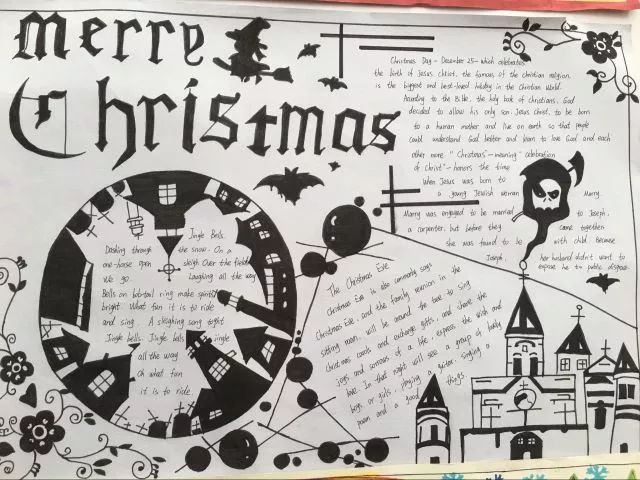 merry
Christmas
Christmas Day - December 25 - which celebrates
the birth of Jesus Christ, the famous of the christian religion,
is the biggest and best-loved holiday in the Christian World.
According to the Bible, the holy book of christians, God
decided to allow his only son, Jesus Christ, to be born
to a human mother and live on earth so that people
could understand God better and learn to love God and each
other more. "Christmas"-meaning "celebration
of Christ"- honors the time
When Jesus was born to
a young Jewish woman Marry.
Marry was engaged to be married to Joseph,
a carpenter, but before they came together
she was found to be with child. Because
Joseph, her husband didn't want to
expose he to public disgrace.
Jingle Bells
Dashing through the snow. On a
one-horse open sleigh Over the fields
We go. Laughing all the way
Bells on bob-tail ring make spirits
bright. What fun it is to ride
and sing. A sleighing song tonight
Jingle bells. Jingle bells jingle
all the way
Oh what fun
it is to ride.
The Christmas Eve
Christmas Eve is also commonly says
Christmas Eve, and the family reunion in the
sitting room, will be around the love to sing
Christmas carols and exchange gifts, and share the
joys and sorrows of a life, express the wish and
love. In that night will see a group of lovely
boys or girls, playing a guitar, singing a
poem and a good things